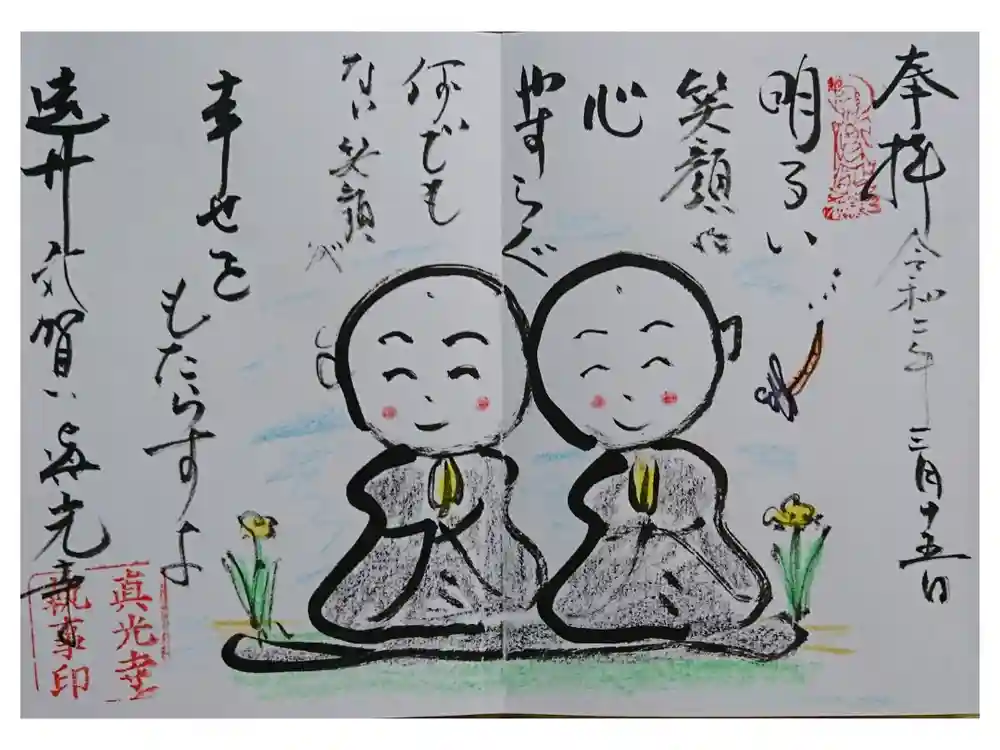 奉拝 令和二年三月十五日
明るい
笑顔に
心
やすらぐ
何でも
ない笑顔が
幸せを
もたらすよ
遠州気賀 眞光寺
眞光寺
執事印